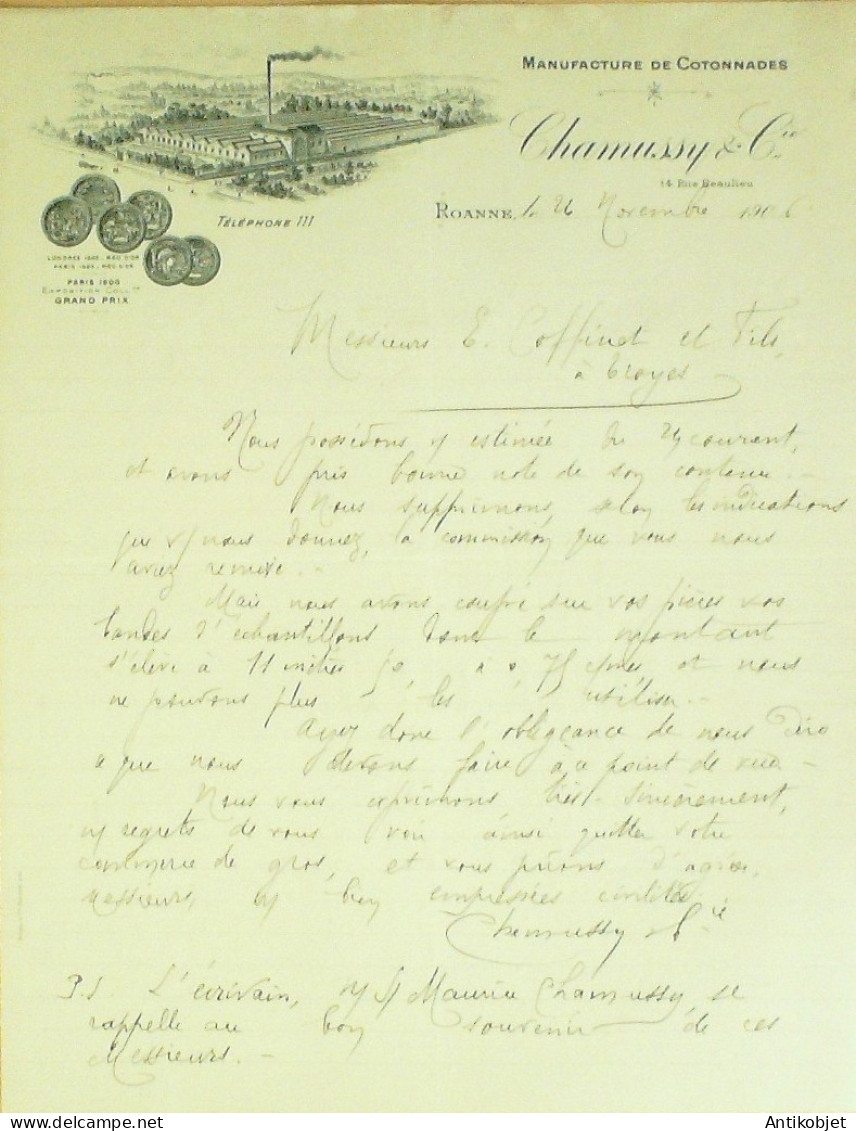 MANUFACTURE DE COTONNADES
Chamussy & Cie
14 Rue Beaulieu
TÉLÉPHONE 111
ROANNE, le 26 Novembre 1906
LONDRES MED. D'OR
PARIS MED. D'OR
PARIS 1900
EXPOSITION COLLve
GRAND PRIX
Messieurs E. Coffinet et Fils,
à Troyes
Nous possédons v/ estimée du 24 courant,
et avons pris bonne note de son contenu. -
Nous supprimons, selon les indications
que v/ nous donnez, la commission que vous nous
aviez remise. -
Mais nous avons coupé sur vos pièces vos
bandes d'échantillons dont le montant
s'élève à 11 mètres 50, à 0,75 et nous
ne pouvons plus les utiliser. -
Ayez donc l'obligeance de nous dire
ce que nous devons faire à ce point de vue -
Nous vous exprimons très sincèrement,
n/ regrets de vous voir ainsi quitter votre
de gros, et vous prions d'agréer,
Messieurs, n/ bien empressées civilités.
Chamussy & Cie
P.S. L'écrivain, n/ S/ Maurice Chamussy, se
rappelle au bon souvenir de ces
Messieurs. -
www.antikobjet.com
Antikobjet